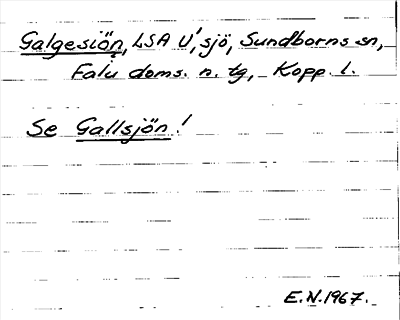 Galgesjön, LSA U', sjö, Sundborns sn,
Falu doms. n. tg, Kopp. l.
Se Gallsjön!
E.N. 1967.